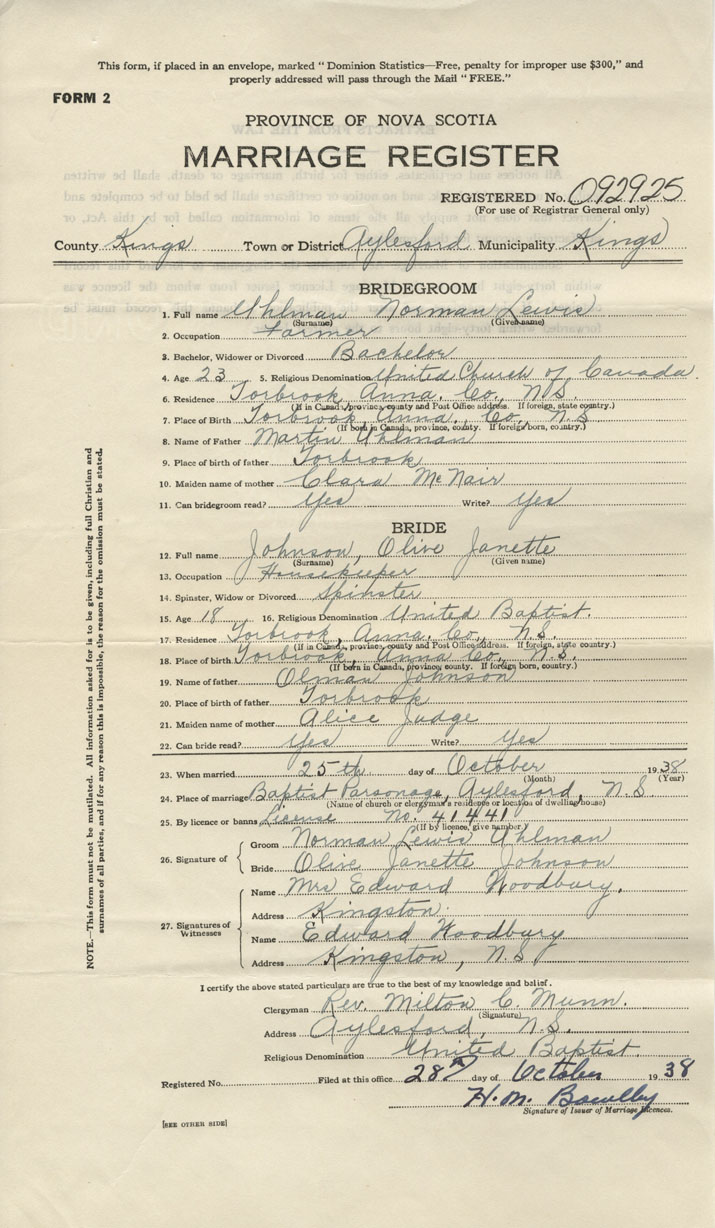 This form, if placed in an envelope, marked "Dominion Statistics—Free, penalty for improper use $300," and
properly addressed will pass through the Mail "FREE."
FORM 2
PROVINCE OF NOVA SCOTIA
MARRIAGE REGISTER
REGISTERED No. 092925
(For use of Registrar General only)
County Kings Town or District Aylesford Municipality Kings
BRIDEGROOM
1. Full name Uhlman Norman Lewis
(Surname) (Given name)
2. Occupation Farmer
3. Bachelor, Widower or Divorced Bachelor
4. Age 23 5. Religious Denomination United Church of Canada.
6. Residence Torbrook, Anna. Co., N.S.
(If in Canada, province, county and Post Office address. If foreign, state country.)
7. Place of Birth Torbrook, Anna., Co., N.S
(If born in Canada, province, county. If foreign born, country.)
8. Name of Father Martin Uhlman
9. Place of birth of father Torbrook
10. Maiden name of mother Clara McNair
11. Can bridegroom read? Yes Write? Yes
BRIDE
12. Full name Johnson, Olive Janette
(Surname) (Given name)
13. Occupation Housekeeper
14. Spinster, Widow or Divorced Spinster
15. Age 18 16. Religious Denomination United Baptist.
17. Residence Torbrook, Anna. Co., N.S.
(If in Canada, province, county and Post Office address. If foreign, state country.)
18. Place of birth Torbrook, Anna Co., N.S.
(If born in Canada, province, county. If foreign born, country.)
19. Name of father Olman Johnson
20. Place of birth of father Torbrook
21. Maiden name of mother Alice Judge
22. Can bride read? Yes Write? Yes
23. When married 25th day of October 1938
(Month) (Year)
24. Place of marriage Baptist Parsonage, Aylesford, N.S
(Name of church or clergyman's residence or location of dwelling house)
25. By licence or banns License No. 41441
(If by licence, give number)
26. Signature of
Groom Norman Lewis Uhlman
Bride Olive Janette Johnson
27. Signatures of Witnesses
Name Mrs Edward Woodbury.
Address Kingston.
Name Edward Woodbury
Address Kingston, N.S
I certify the above stated particulars are true to the best of my knowledge and belief.
Clergyman Rev. Milton C. Munn.
(Signature)
Address Aylesford, N.S.
Religious Denomination United Baptist.
Registered No. Filed at this office 28th day of October 1938
H. M.
Signature of Issuer of Marriage Licences.
[SEE OTHER SIDE]
NOTE.—This form must not be mutilated. All information asked for is to be given, including full Christian and
surnames of all parties, and if for any reason this is impossible, the reason for the omission must be stated.